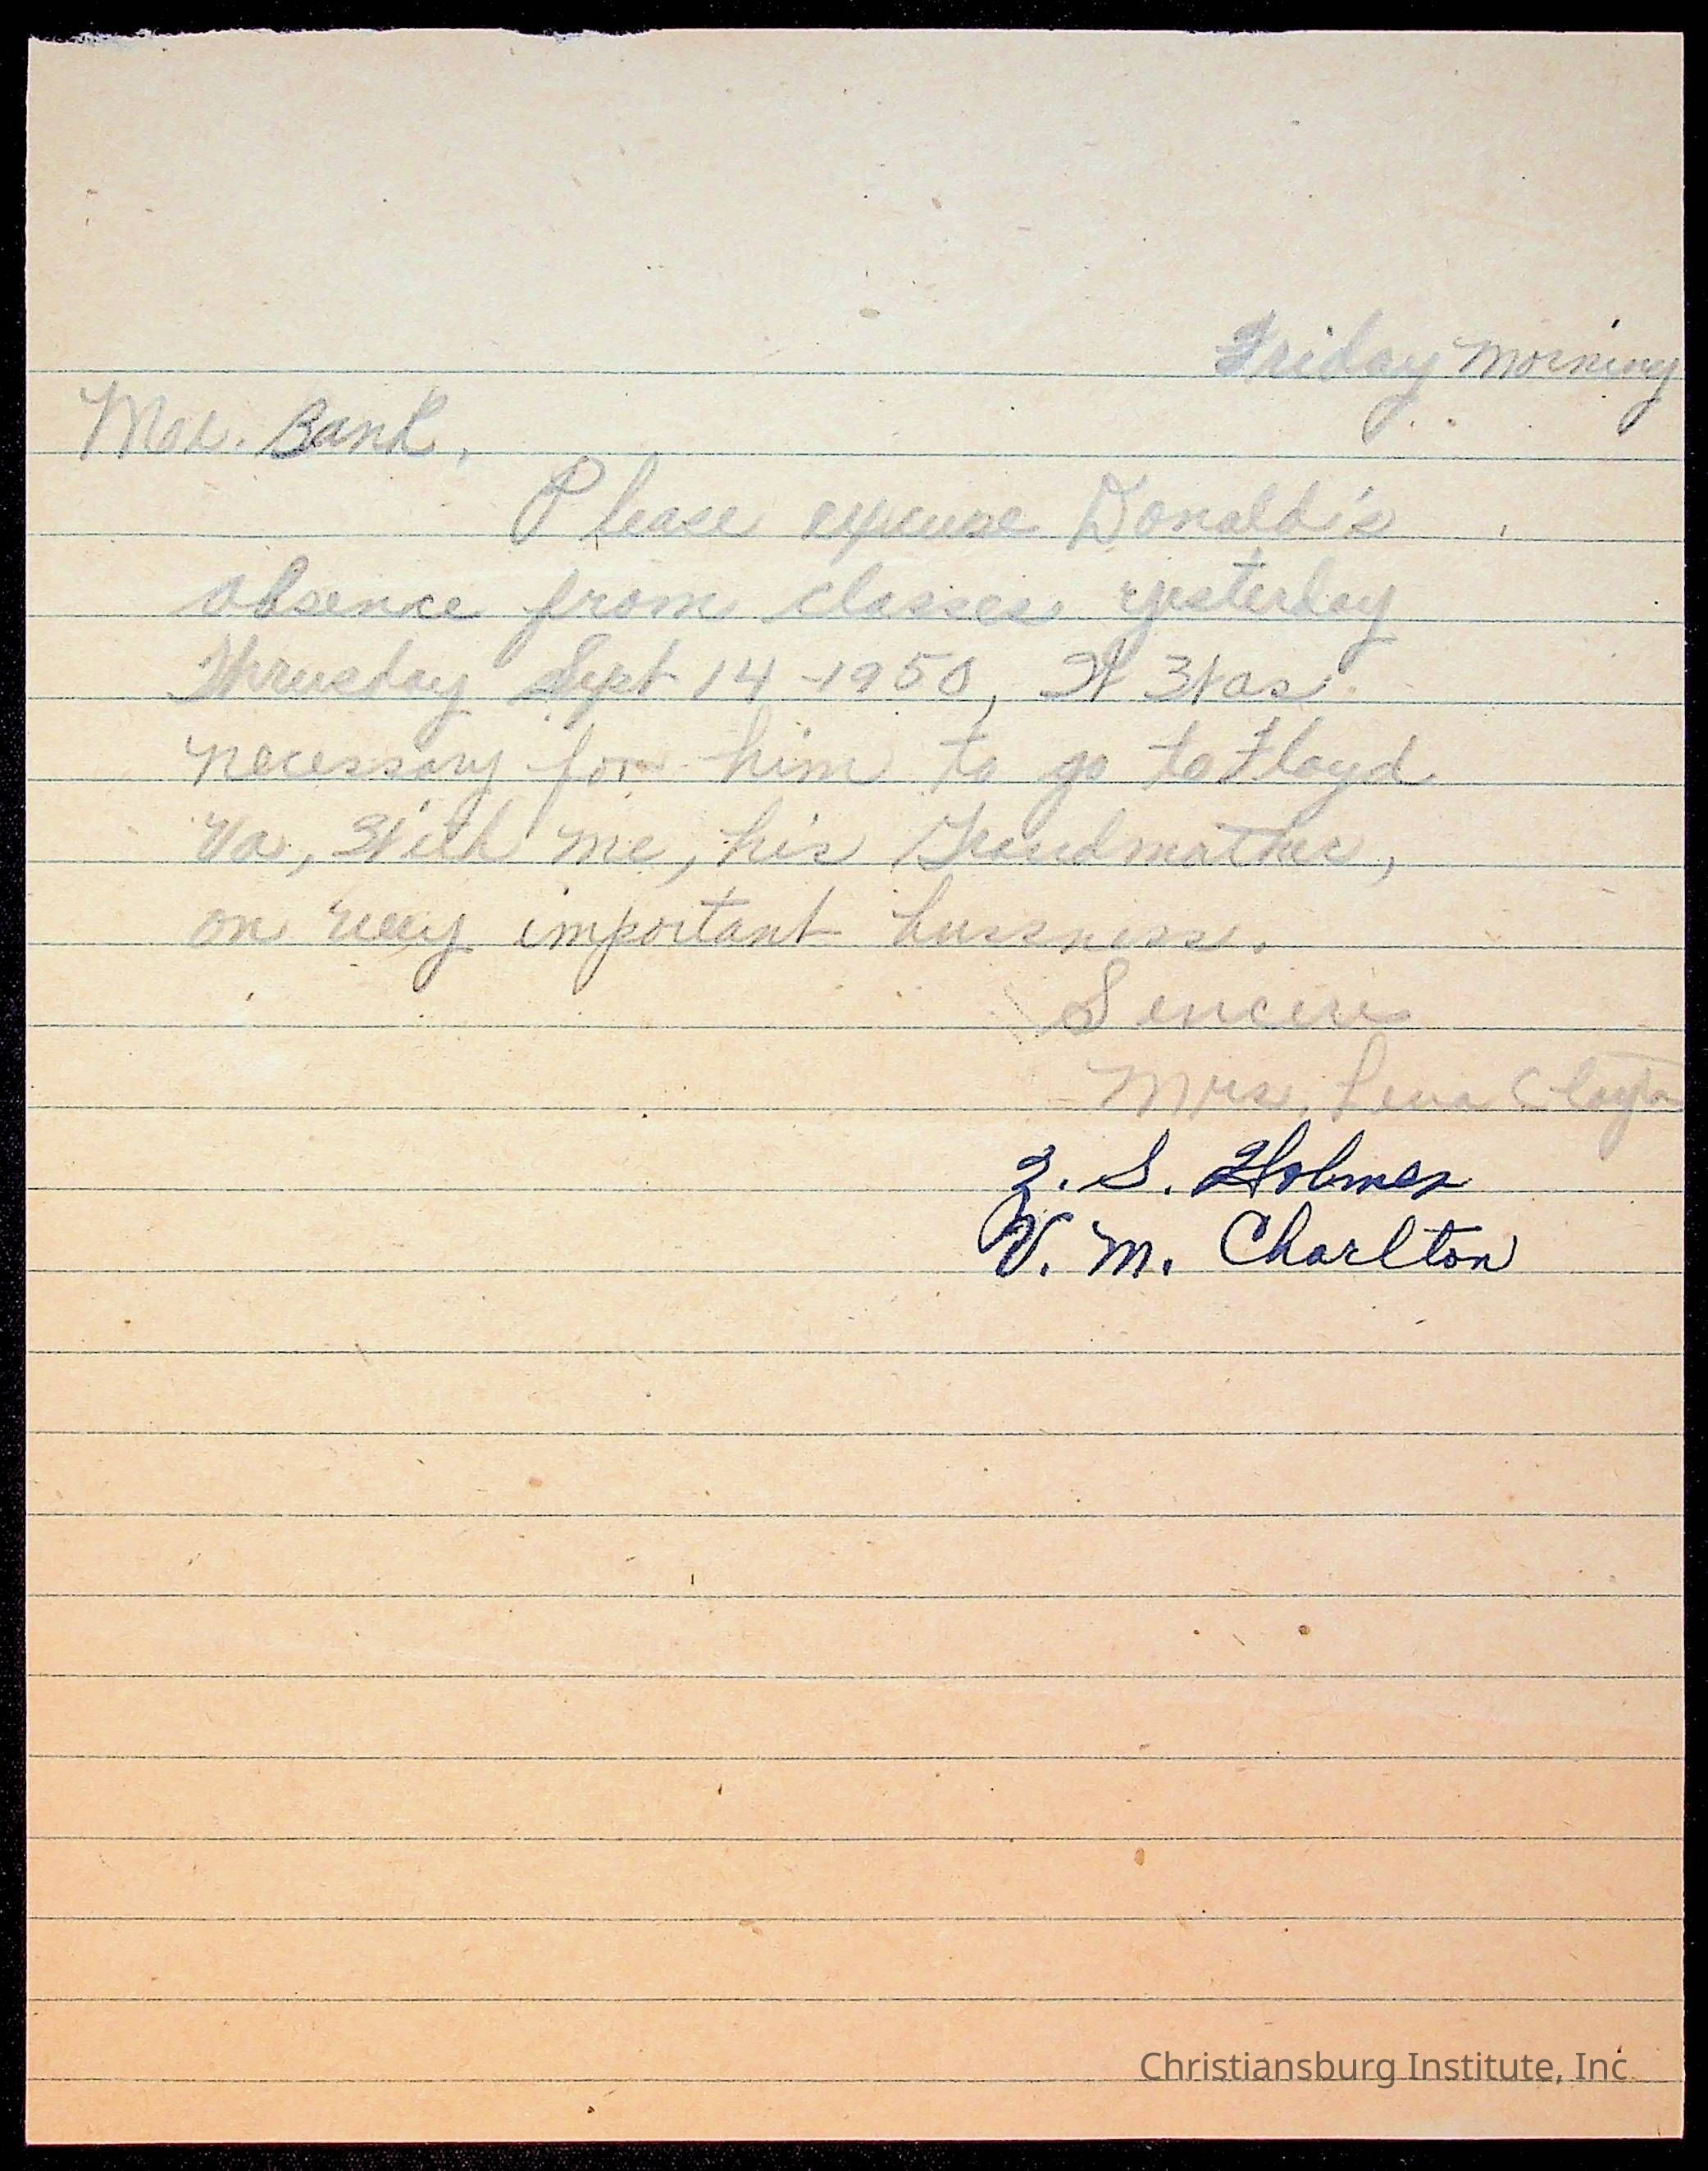 Friday Morning
Mrs. Bank,
Please expcuse Donald's
absence from classes yesterday
Thrusday Sept 14-1950, It Was
necessary for him to go to Floyd
Va, With me, his Grandmother,
on very important bussniss.
Sencere
Mrs. Lena Clayton
Z. S. Holmes
V. M. Charlton
Christiansburg Institute, Inc